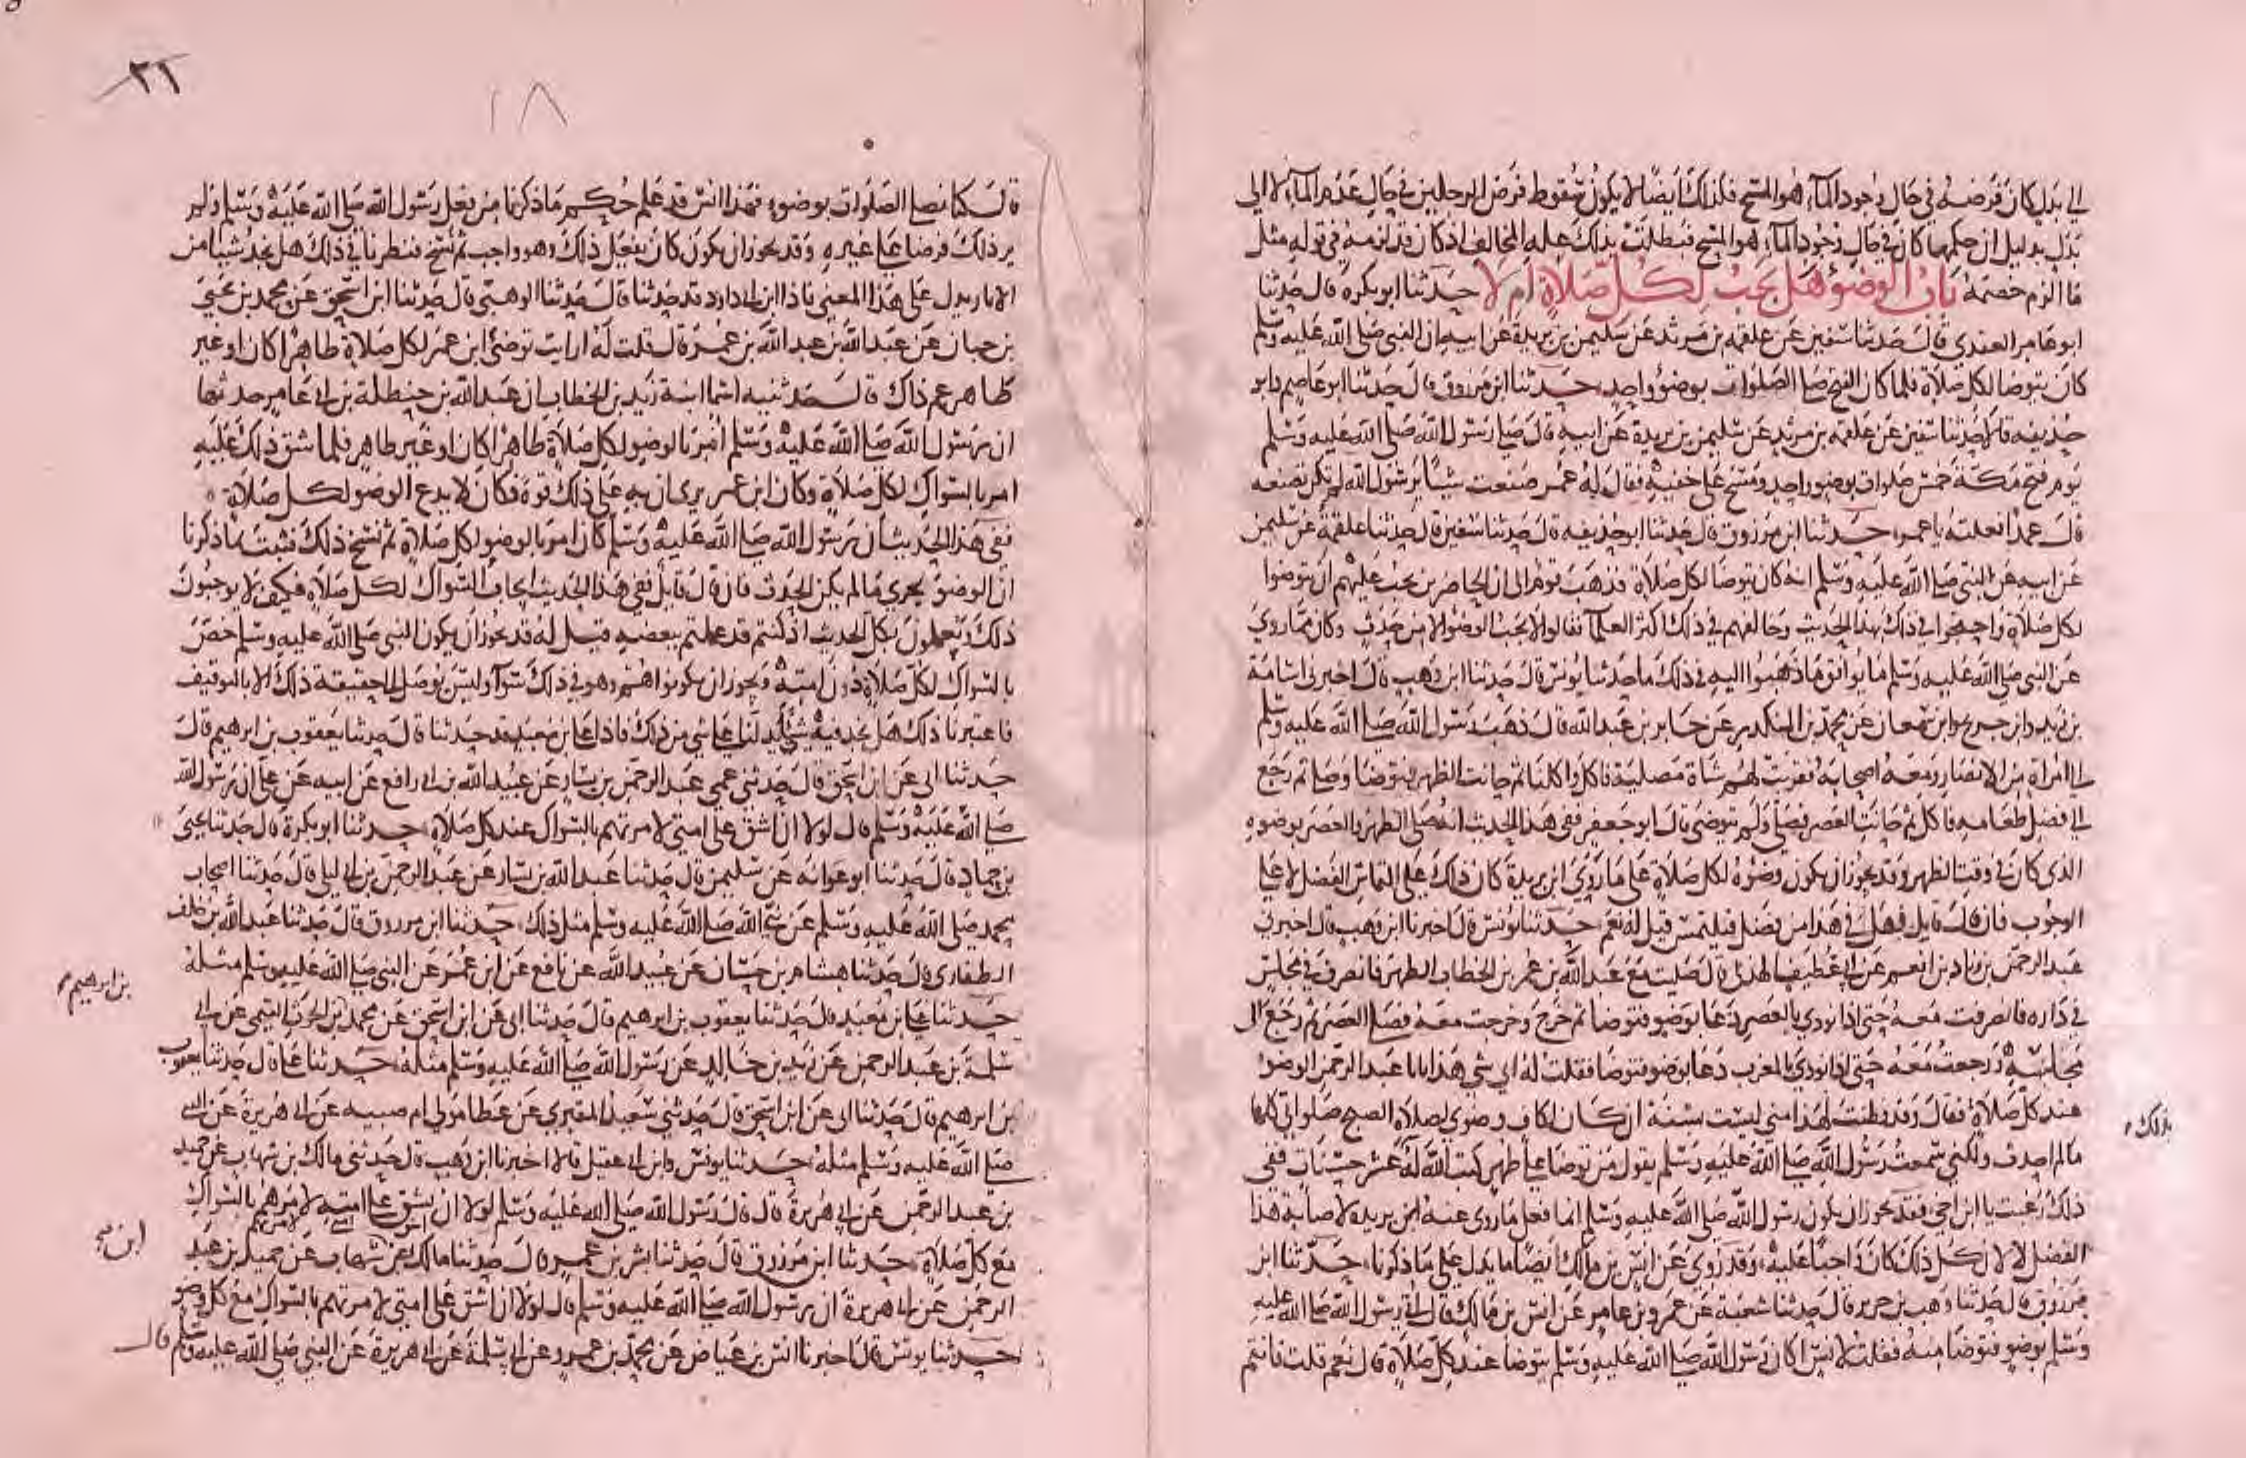 الى بدل كان فرضه في حال وجود الماء هو المسح فكذلك ايضا لا يكون سقوط فرض الرجلين في حال عدم الماء لا الى
بدل بدليل ان حكمها كان في حال وجود الماء هو المسح فبطلت بذلك علة المخالف اذ كان قد لزمه في قوله مثل
ما الزم خصمه باب الوضوء هل يجب لكل صلاة ام لا حدثنا ابو بكرة قال حدثنا
ابو عامر العقدي قال حدثنا سفين عن علقمه بن مرثد عن سليمن بن بريدة عن ابيه ان النبي صلى الله عليه وسلم
كان يتوضا لكل صلاة فلما كان الفتح صلى الصلوات بوضوء واحد، حدثنا ابن مرزوق قال حدثنا ابو عاصم وابو
حذيفه قالا حدثنا سفين عن علقمه بن مرثد عن سليمن بن بريدة عن ابيه قال صلى رسول الله صلى الله عليه وسلم
يوم فتح مكة خمس صلوات بوضوء واحد ومسح على خفيه فقال له عمر صنعت شيئا يرسول الله لم تكن تصنعه
قال عمدا فعلته ياعمر، حدثنا ابن مرزوق قال حدثنا ابو حذيفه قال حدثنا سفين قال حدثنا علقمة عن سليمن
عن ابيه عن النبي صلى الله عليه وسلم انه كان يتوضا لكل صلاة فذهب قوم الى ان الحاضرين يجب عليهم ان يتوضوا
لكل صلاة واحتجوا في ذلك بهذا الحديث وخالفهم في ذلك اكثر العلماء فقالوا لا يجب الوضوء الا من حدث وكان مما روي
عن النبي صلى الله عليه وسلم ما يوافق ما ذهبوا اليه في ذلك ما حدثنا يونس قال حدثنا ابن وهب قال اخبرني اسامة
بن زيد وابن جريج وابن سمعان عن محمد بن المنكدر عن جابر بن عبد الله قال ذهب رسول الله صلى الله عليه وسلم
الى امراة من الانصار ومعه اصحابه فقربت لهم شاة مصلية فاكل واكلنا ثم حانت الظهر فتوضا وصلى ثم رجع
الى فضل طعامه فاكل ثم حانت العصر فصلى ولم يتوضى قال ابو جعفر ففي هذا الحديث انه صلى الظهر والعصر بوضوءه
الذي كان في وقت الظهر وقد يجوز ان يكون وضوءه لكل صلاة على ما روي ابن بريدة كان ذلك على التماس الفضل لا على
الوجوب فان قال قايل فهل في هذا من فضل فيلتمس قيل له نعم، حدثنا يونس قال اخبرنا ابن وهب قال اخبرني
عبد الرحمن بن زياد بن انعم عن ابي غطيف الهذلي قال صليت مع عبد الله بن عمر بن الخطاب الظهر فانصرف في مجلس
في داره فانصرفت معه حتى اذا نودي بالعصر دعا بوضوء فتوضا ثم خرج وخرجت معه فصلى العصر ثم رجع الى
مجلسه ورجعت معه حتى اذا نودي بالمغرب دعا بوضوء فتوضا فقلت له اي شي هذا يابا عبد الرحمن الوضوء
عند كل صلاة فقال وقد فطنت لهذا مني ليست بسنة ان كان لكاف وضوي لصلاة الصبح صلواتي كلها
ما لم احدث ولكني سمعت رسول الله صلى الله عليه وسلم يقول من توضا على طهر كتب الله له عشر حسنات ففي
بذلك
ذلك رغبت يا ابن اخي فقد يجوز ان يكون رسول الله صلى الله عليه وسلم انما فعل ما روى عنه ابن بريده لاصابة هذا
الفضل لا لان كل ذلك كان واجبا عليه، وقد روي عن انس بن مالك ايضا ما يدل على ما ذكرنا، حدثنا ابن
مرزوق قال حدثنا وهب بن جرير قال حدثنا شعبة عن عمرو بن عامر عن انس بن مالك قال اتي رسول الله صلى الله عليه
وسلم بوضوء فتوضا منه فقلت لانس اكان رسول الله صلى الله عليه وسلم يتوضا عند كل صلاة قال نعم قلت فانتم
٢٦
١٨
قال كنا نصلي الصلوات بوضوء فهذا انس قد علم حكم ما ذكرنا من فعل رسول الله صلى الله عليه وسلم ولم
ير ذلك فرضا على غيره وقد يجوز ان يكون كان يفعل ذلك وهو واجب ثم نسخ فنظرنا في ذلك هل نجد شيا من
الاثار يدل على هذا المعنى فاذا ابن ابي داود قد حدثنا قال حدثنا الوهبي قال حدثنا ابن اسحق عن محمد بن يحيى
بن حبان عن عبد الله بن عبد الله بن عمر قال قلت له ارايت توضئ ابن عمر لكل صلاة طاهرا كان او غير
طاهر عم ذاك قال حدثنيه اسما ابنة زيد بن الخطاب ان عبد الله بن حنظلة بن ابي عامر حدثها
ان رسول الله صلى الله عليه وسلم امر بالوضوء لكل صلاة طاهرا كان او غير طاهر فلما شق ذلك عليه
امر بالسواك لكل صلاة وكان ابن عمر يرى ان به على ذلك قوة فكان لا يدع الوضوء لكل صلاة
ففي هذا الحديث ان رسول الله صلى الله عليه وسلم كان امر بالوضوء لكل صلاة ثم نسخ ذلك فثبت بما ذكرنا
ان الوضوء يجزي ما لم يكن الحدث فان قال قايل ففي هذا الحديث ايجاب السواك لكل صلاة فكيف لا يوجبون
ذلك وتعملون بكل الحديث اذ كنتم قد عملتم ببعضه قيل له قد يجوز ان يكون النبي صلى الله عليه وسلم خص
بالسواك لكل صلاة دون امته ويجوز ان يكونوا هم وهو في ذلك سوآ وليس يوصل الى حقيقة ذلك الا بالتوقيف
فاعتبرنا ذلك هل نجد فيه شيئا يدلنا على شي من ذلك فاذا على بن معبد قد حدثنا قال حدثنا يعقوب بن ابرهيم قال
حدثنا ابي عن ابن اسحق قال حدثني عمي عبد الرحمن بن يسار عن عبيد الله بن ابي رافع عن ابيه عن علي ان رسول الله
صلى الله عليه وسلم قال لولا ان اشق على امتي لامرتهم بالسواك عند كل صلاة، حدثنا ابو بكرة قال حدثنا يحيى
بن حماد قال حدثنا ابو عوانه عن سليمن قال حدثنا عبد الله بن يسار عن عبد الرحمن بن ابي ليلى قال حدثنا اصحاب
محمد صلى الله عليه وسلم عن نبي الله صلى الله عليه وسلم مثل ذلك، حدثنا ابن مرزوق قال حدثنا عبد الله بن خلف
الطفاوي قال حدثنا هشام بن حسان عن عبيد الله عن نافع عن ابن عمر عن النبي صلى الله عليه وسلم مثله
بن ابرهيم
حدثنا على بن معبد قال حدثنا يعقوب بن ابرهيم قال حدثنا ابي عن ابن اسحق عن محمد بن الحرث التيمي عن ابي
سلمة بن عبد الرحمن عن زيد بن خالد عن رسول الله صلى الله عليه وسلم مثله، حدثنا على قال حدثنا يعقوب
بن ابرهيم قال حدثنا ابي عن ابن اسحق قال حدثني سعيد المقبري عن عطا مولى ام صبيه عن ابي هريرة عن النبي
صلى الله عليه وسلم مثله، حدثنا يونس وابن ابي عقيل قالا اخبرنا ابن وهب قال حدثني مالك بن شهاب عن حميد
بن عبد الرحمن عن ابي هريرة قال قال رسول الله صلى الله عليه وسلم لولا ان يشق على امته لامرهم بالسواك
مع كل صلاة، حدثنا ابن مرزوق قال حدثنا بشر بن عمر قال حدثنا مالك عن شهاب عن حميد بن عبد
الرحمن عن ابي هريرة ان رسول الله صلى الله عليه وسلم قال لولا ان اشق على امتي لامرتهم بالسواك مع كل وضوء
حدثنا يونس قال اخبرنا انس بن عياض عن محمد بن عمرو عن ابي سلمة عن ابي هريرة عن النبي صلى الله عليه وسلم قال